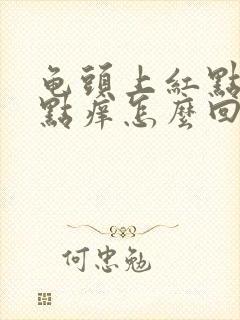 龟頭上紅點
點痒怎麼回
何忠勉